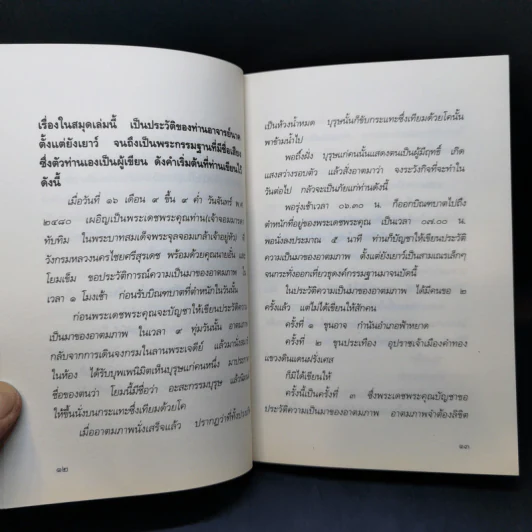 เรื่องในสมุดเล่มนี้ เป็นประวัติของท่านอาจารย์นวด
ตั้งแต่ยังเยาว์ จนถึงเป็นพระกรรมฐานที่มีชื่อเสียง
ซึ่งตัวท่านเองเป็นผู้เขียน ดังคำเริ่มต้นที่ท่านเขียนไว้
ดังนี้
เมื่อวันที่ ๑๖ เดือน ๙ ขึ้น ๙ ค่ำ วันจันทร์ พ.ศ.
๒๔๘๐ เผอิญเป็นพระเดชพระคุณท่าน(เจ้าจอมมารดา
ทับทิม ในพระบาทสมเด็จพระจุลจอมเกล้าเจ้าอยู่หัว)
วังกรมหลวงนครไชยศรีสุรเดช พร้อมด้วยคุณนายอั๋น และ
โยมเข็ม ขอประวัติการณ์ความเป็นมาของอาตมภาพ
เวลา ๑ โมงเช้า ก่อนรับบิณฑบาตที่ตำหนักในวันนั้น
ก่อนพระเดชพระคุณจะบัญชาให้เขียนประวัติความ
เป็นมาของอาตมภาพ ในเวลา ๙ ทุ่มวันนั้น อาตมภาพ
กลับจากการเดินจงกรมในลานพระเจดีย์ แล้วมานั่งพัก
ในห้อง ได้รับบุพเพนิมิตเห็นบุรุษแก่คนหนึ่ง มาประกาศ
ชื่อของตนว่า โยมนี้มีชื่อว่า อะสะกรรมบุรุษ แล้วนิมนต์
ให้ขึ้นนั่งบนกระแทะซึ่งเทียมด้วยโค
เมื่ออาตมภาพนั่งเสร็จแล้ว ปรากฏว่าที่ทั้งปวง
๑๒
เป็นห้วงน้ำหมด บุรุษนั้นก็ขับกระแทะซึ่งเทียมด้วยโคนั้น
พาข้ามน้ำไป
พอถึงฝั่ง บุรุษแก่คนนั้นแสดงตนเป็นผู้มีฤทธิ์ เกิด
แสงสว่างรอบตัว แล้วสั่งอาตมาว่า จงระวังกิจที่จะทำใน
วันต่อไป กลัวจะเป็นภัยแก่ท่านดังนี้
พอรุ่งเช้าเวลา ๐๖.๓๐ น. ก็ออกบิณฑบาตไปถึง
ตำหนักที่อยู่ของพระเดชพระคุณ เป็นเวลา ๐๗.๐๐ น.
พอนั่งลงประมาณ ๕ นาที ท่านก็บัญชาให้เขียนประวัติ
ความเป็นมาของอาตมภาพ ตั้งแต่ยังเยาว์เป็นสามเณรเล็กๆ
จนกระทั่งออกเที่ยวธุดงค์กรรมฐานมาจนบัดนี้
ในประวัติความเป็นมาของอาตมภาพ ได้มีคนขอ ๒
ครั้งแล้ว แต่ไม่ได้เขียนให้สักคน
ครั้งที่ ๑ ขุนอาจ กำนันอำเภอฟ้าหยาด
ครั้งที่ ๒ ขุนประเทือง อุปราชเจ้าเมืองคำทอง
แขวงดินแดนฝรั่งเศส
ก็มิได้เขียนให้
ครั้งนี้เป็นครั้งที่ ๓ ซึ่งพระเดชพระคุณบัญชาขอ
ประวัติความเป็นมาของอาตมภาพ อาตมภาพจำต้องลิขิต
๑๓